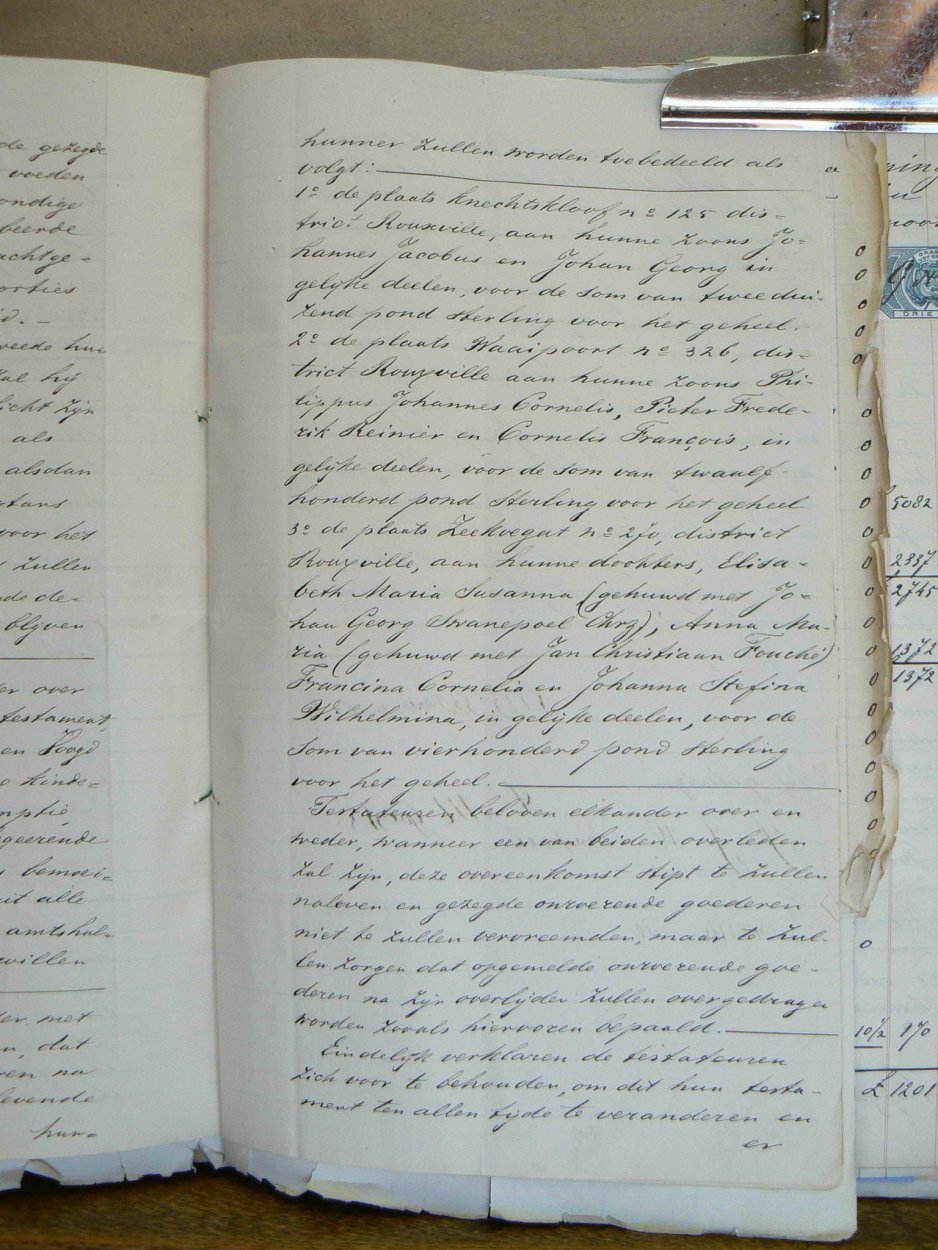 de gezegde
voeden
ondige
beerde
achtge=
orties
weede hu=
zal hij
licht zijn
als
alsdan
voor het
zullen
de de=
blijven
er over
testament,
en Voogd
kinde=
mptie,
geerende
bemoei=
uit alle
amtshal=
willen
er met
n, dat
ren na
levende
hun=
hunner zullen worden toebedeeld als
volgt:
1º de plaats Knechtskloof nº 125 dis=
trict Rouxville, aan hunne zoons Jo=
hannes Jacobus en Johan Georg in
gelijke deelen, voor de som van twee dui-
zend pond sterling voor het geheel.
2º de plaats Waaipoort nº 326, dis=
trict Rouxville aan hunne zoons Phi-
lippus Johannes Cornelis, Pieter Frede-
rik Reinier en Cornelis François, in
gelijke deelen, voor de som van twaalf-
honderd pond sterling voor het geheel
3º de plaats Zeekoegat nº 270, district
Rouxville, aan hunne dochters, Elisa-
beth Maria Susanna (gehuwd met Jo-
han Georg Swanepoel Chrz), Anna Ma-
ria (gehuwd met Jan Christiaan Fouché)
Francina Cornelia en Johanna Stefina
Wilhelmina, in gelijke deelen, voor de
som van vierhonderd pond sterling
voor het geheel.
Testateuren beloven elkander over en
weder, wanneer een van beiden overleden
zal zijn, deze overeenkomst stipt te zullen
naleven en gezegde onroerende goederen
niet te zullen vervreemden, maar te zul-
len zorgen dat opgemelde onroerende goe-
deren na zijn overlijden zullen overgedragen
worden zooals hiervoren bepaald.
Eindelijk verklaren de testateuren
zich voor te behouden, om dit hun testa-
ment ten allen tijde te veranderen en
er
ning
DRIE
5082
2337
2745
1372
1372
10½ 170
£ 1201